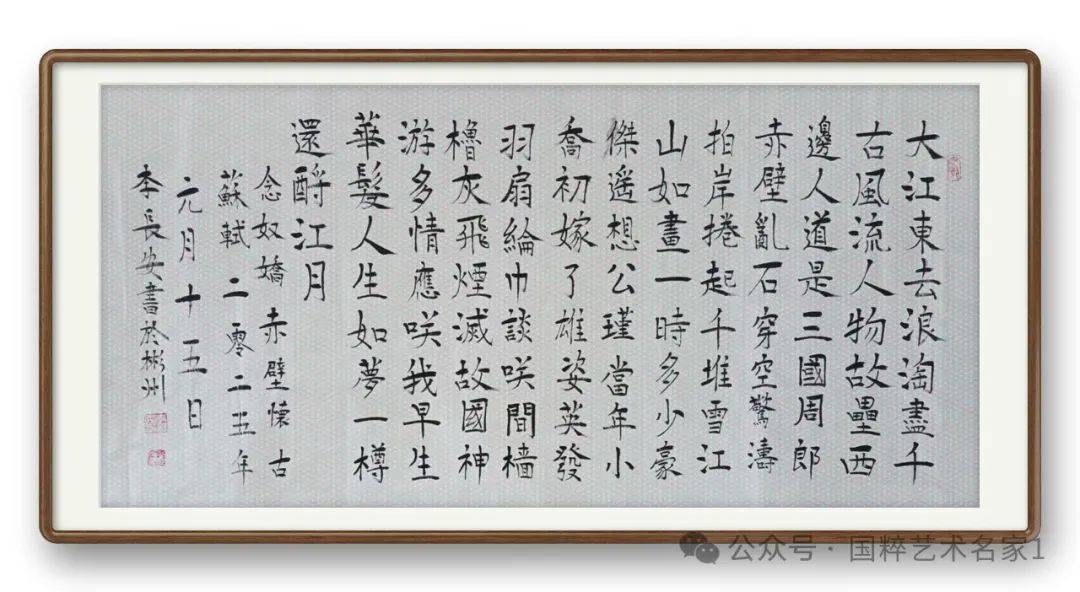 大江東去浪淘盡千
古風流人物故壘西
邊人道是三國周郎
赤壁亂石穿空驚濤
拍岸捲起千堆雪江
山如畫一時多少豪
傑遥想公瑾當年小
喬初嫁了雄姿英發
羽扇綸巾談咲間檣
櫓灰飛煙滅故國神
游多情應咲我早生
華髮人生如夢一樽
還酹江月
念奴嬌 赤壁懷古
蘇軾 二零二五年
元月十五日
李長安書於彬州
公众号 · 国粹艺术名家1